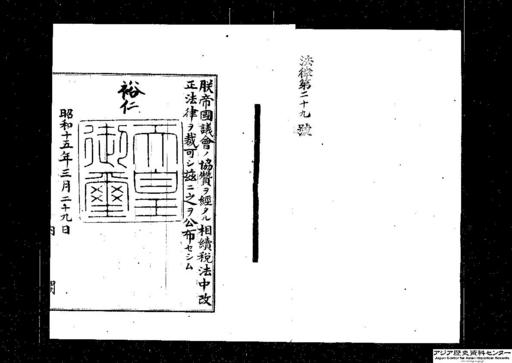 法律第二十九號
朕帝國議會ノ協贊ヲ經タル相續稅法中改
正法律ヲ裁可シ茲ニ之ヲ公布セシム
裕仁
天皇
御璽
昭和十五年三月二十九日
內閣
アジア歴史資料センター
Japan Center for Asian Historical Records